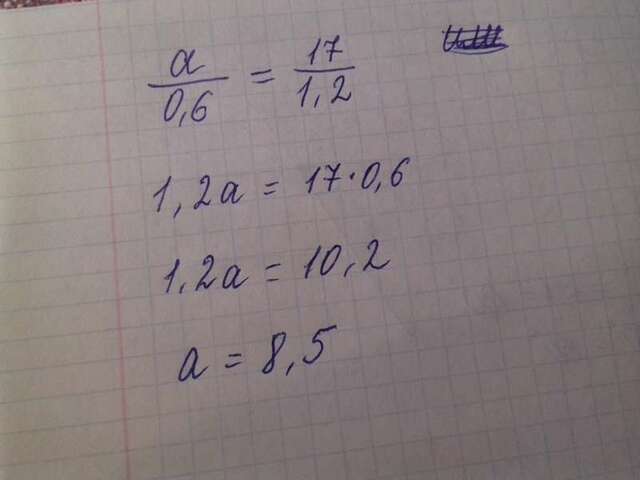 a/0,6 = 17/1,2
1,2a = 17·0,6
1,2a = 10,2
a = 8,5